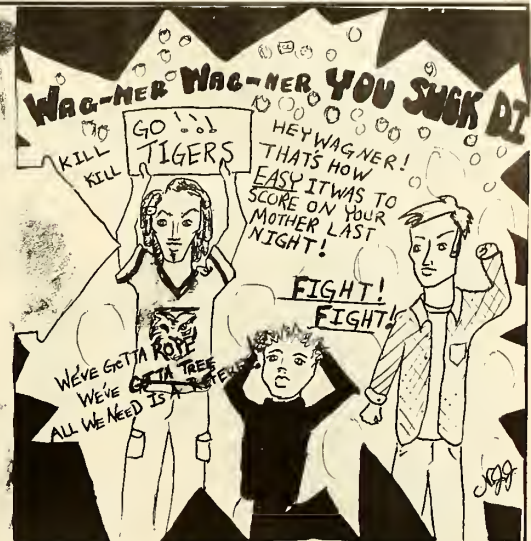 WAG-NER WAG-NER YOU SUCK DI
KILL
KILL
GO!!!
TIGERS
HEY WAGNER!
THATS HOW
EASY IT WAS TO
SCORE ON YOUR
MOTHER LAST
NIGHT!
FIGHT!
FIGHT!
WE'VE GOTTA ROPE
WE'VE GOTTA TREE
ALL WE NEED IS A